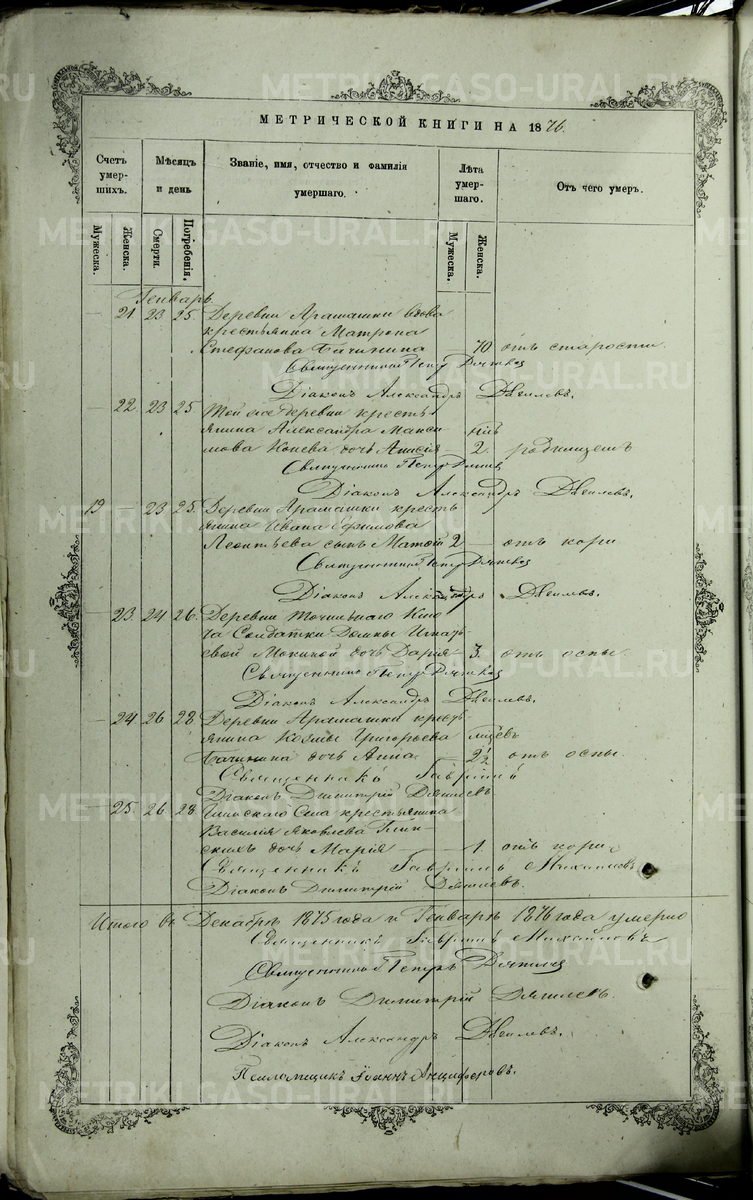 МЕТРИЧЕСКОЙ КНИГИ НА 1876.
Счетъ умерших. Мѣсяцъ и день Званіе, имя, отчество и фамилія умершаго. Лѣта умершаго. Отъ чего умеръ.
Мужеска. Женска. Смерти. Погребенія. Мужеска. Женска.
Генварь.
— 21 23 25. Деревни Арамашки вдова
крестьянина Матрона
Стефанова Бачинина — 70 отъ старости.
Священникъ Петръ
Діаконъ Александръ
— 22. 23 25 Той же деревни кресть-
янина Александра Макси-
мова Конева дочь 2. родимцемъ
Священникъ Петръ
Діаконъ Александръ
19 — 23 25. Деревни Арамашки кресть
янина Ивана Ефимова
Леонтьева сынъ 2 — отъ кори
Священникъ Петръ
Діаконъ Александръ
— 23. 24 26. Деревни Точильнаго Клю-
ча Солдатки Домны Игнать-
евой Мокиной дочь Дарія — 3. отъ оспы.
Священникъ Петръ
Діаконъ Александръ
— 24. 26 28 Деревни Арамашки кресть
янина Козмы Григорьева
Бачинина дочь Анна 2½ отъ оспы.
Священникъ Гавріилъ
Діаконъ Димитрій
— 25. 26 28. Глинскаго Села крестьянина
Василія Яковлева Глин-
скихъ дочь Марія — 1. отъ кори
Священникъ Гавріилъ Михайловъ
Діаконъ Димитрій
Итого въ Декабрѣ 1875 года и Генварѣ 1876 года умерло
Священникъ Гавріилъ Михайловъ
Священникъ Петръ
Діаконъ Димитрій
Діаконъ Александръ
Псаломщикъ Іоаннъ Анциферовъ.
METRIKI.GASO-URAL.RU